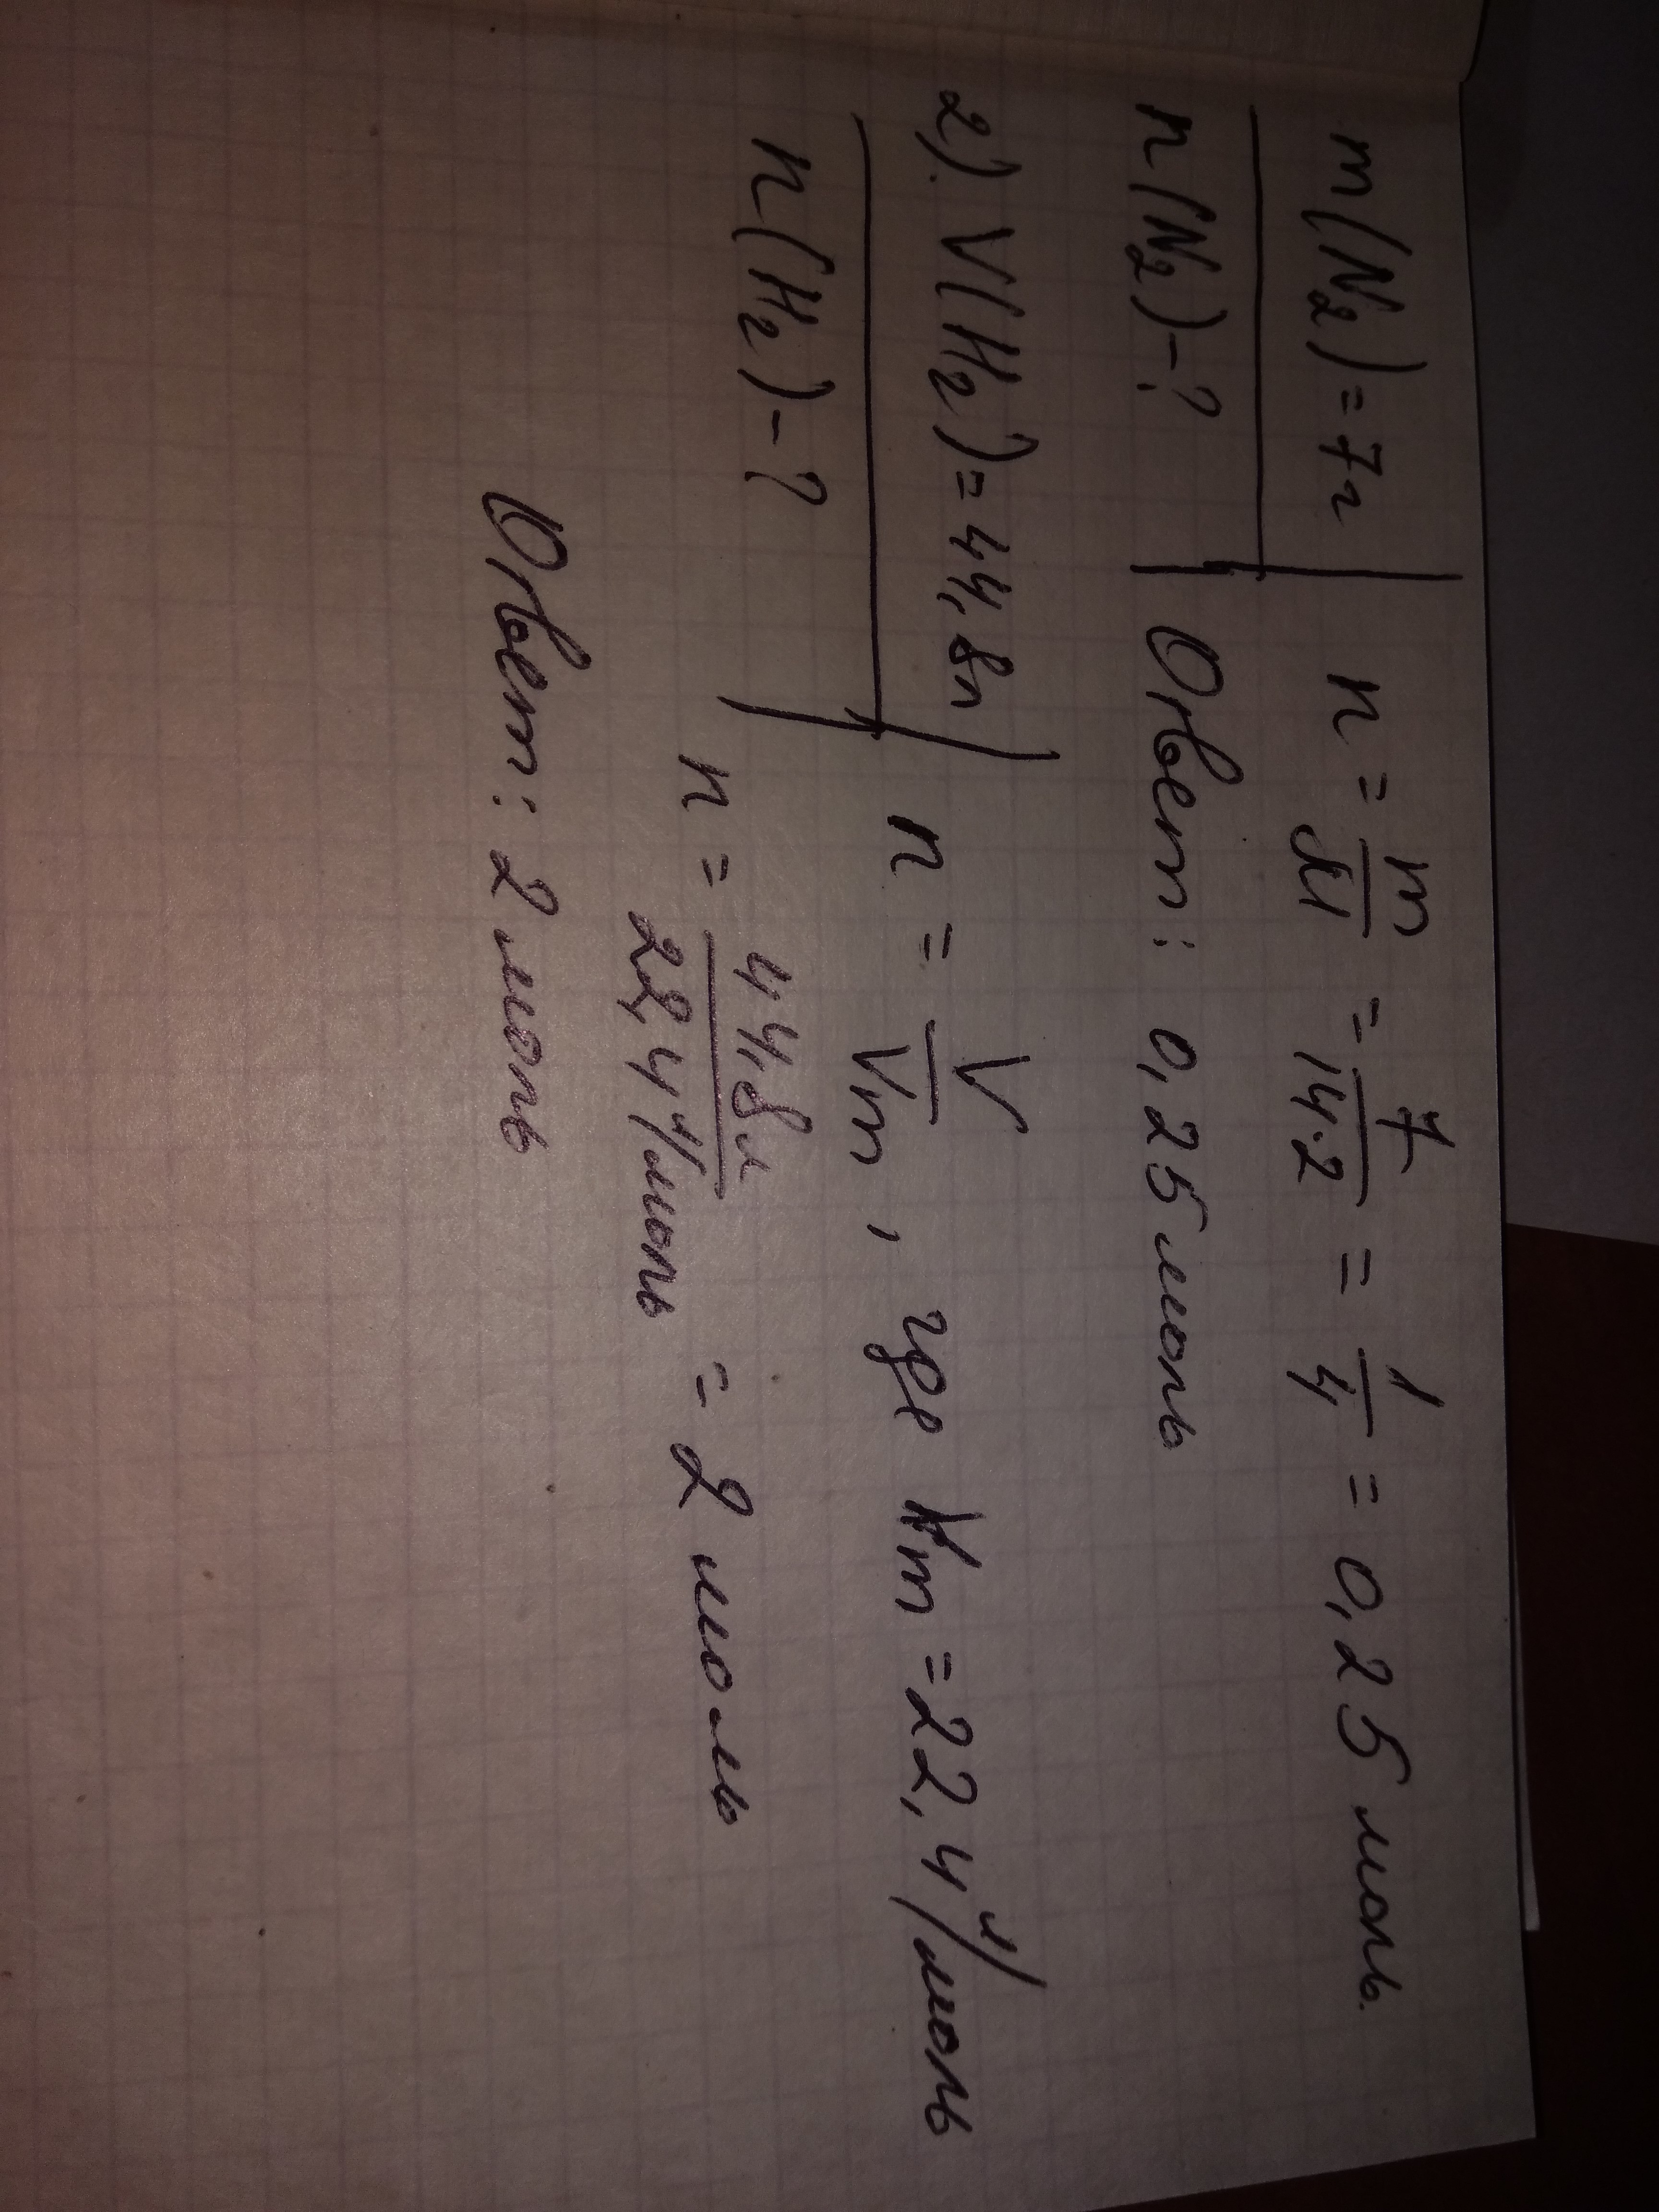 m(N₂)=7г n = m/M = 7/14·2 = 1/4 = 0,25 моль.
n(N₂)-? Ответ: 0,25 моль
2) V(H₂)=44,8л n = V/Vm, где Vm = 22,4 л/моль
n(H₂)-?
n = 44,8л/22,4 л/моль = 2 моль
Ответ: 2 моль